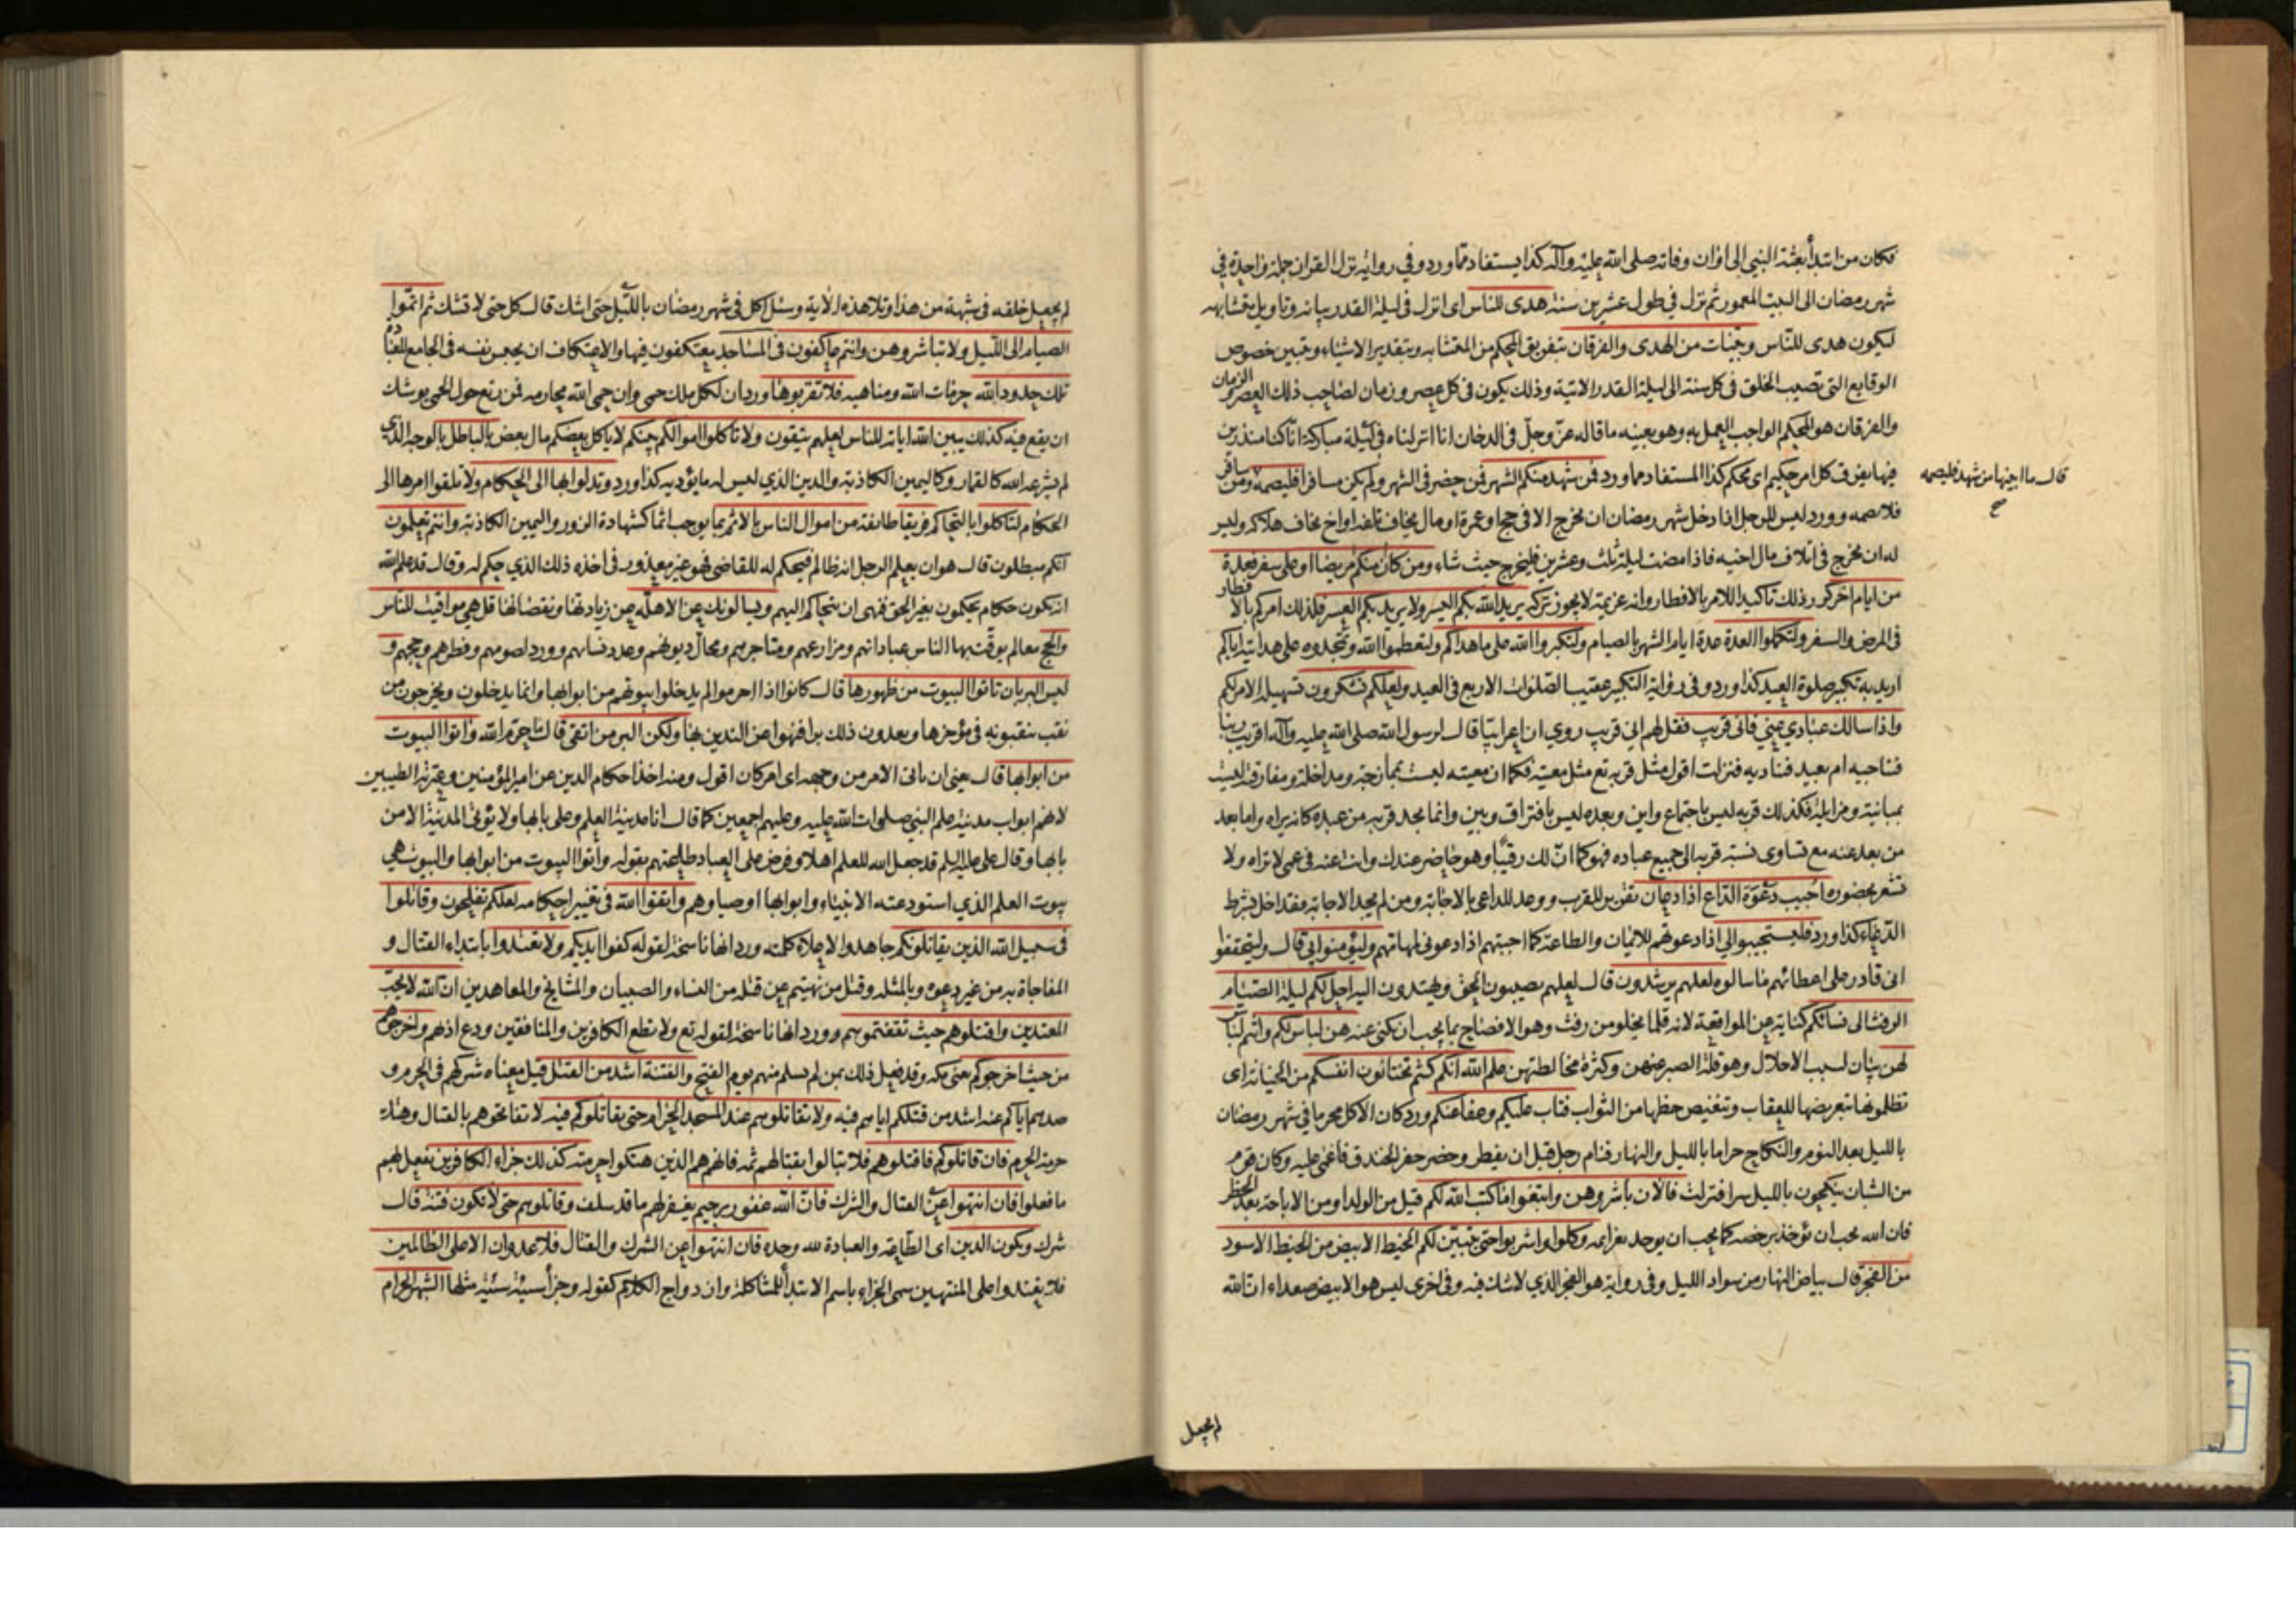 فكان من ابتدأ بعثة النبي الى اوان وفاته صلى الله عليه وآله كذا يستفاد مما ورد وفي رواية نزل القران جملة واحدة في
شهر رمضان الى البيت المعمور ثم نزل في طول عشرين سنة هدى للناس اى انزل في ليلة القدر بيانه وتاويل متشابهه
ليكون هدى للناس وبينات من الهدى والفرقان بتفريق المحكم من المتشابه وبتقدير الاشياء وتبيين خصوص
الوقايع التى تصيب الخلق في كل سنة الى ليلة القدر الاتية وذلك يكون في كل عصر وزمان لصاحب ذلك العصر والزمان
والفرقان هو المحكم الواجب العمل به وهو بعينه ما قاله عز وجل في الدخان انا انزلناه في ليلة مباركة انا كنا منذرين
فيها يفرق كل امر حكيم اى محكم كذا المستفاد مما ورد فمن شهد منكم الشهر فمن حضر فى الشهر ولم يكن مسافرا فليصمه ومن سافر
قال ما ابينها من شهد فليصمه
صح
فلا يصمه وورد ليس للرجل اذا دخل شهر رمضان ان يخرج الا في حج او عمرة او مال يخاف تلفه او اخ يخاف هلاكه وليس
له ان يخرج في اتلاف مال اخيه فاذا مضت ليلة ثلث وعشرين فليخرج حيث شاء ومن كان منكم مريضا او على سفر فعدة
من ايام اخر كرر ذلك تاكيدا للامر بالافطار وانه عزيمة لا يجوز تركه يريد الله بكم اليسر ولا يريد بكم العسر فلذلك امركم بالافطار
في المرض والسفر ولتكملوا العدة عدة ايام الشهر بالصيام ولتكبروا الله على ما هداكم ولتعظموا الله وتمجدوه على هدايته اياكم
اريد به تكبير صلوة العيد كذا ورد وفي رواية التكبير عقيب الصلوات الاربع في العيد ولعلكم تشكرون تسهيله الامر لكم
واذا سالك عبادي عني فانى قريب فقل لهم اني قريب روي ان اعرابيا قال لرسول الله صلى الله عليه وآله اقريب ربنا
فنناجيه ام بعيد فنناديه فنزلت اقول مثل قربه تع مثل معيته فكما ان معيته ليست بممازجة ومداخلة ومفارقته ليست
بمباينة ومزايلة فكذلك قربه ليس باجتماع واين وبعده ليس بافتراق وبين وانما يجد قربه من عبده كانه يراه واما بعد
من بعد عنه مع تساوى نسبة قربه الى جميع عباده فهو كما ان لك رقيبا وهو حاضر عندك وانت عنه في عمى لا تراه ولا
تشعر بحضوره اجيب دعوة الداع اذا دعان تقرير للقرب ووعد للداعي بالاجابة ومن لم يجد الاجابة فقد اخل بشرط
الدعاء كذا ورد فليستجيبوا لى اذا دعوتهم للايمان والطاعة كما اجبتهم اذا دعوني لمهماتهم وليؤمنوا بي قال وليتحققوا
اني قادر على اعطائهم ما سالوه لعلهم يرشدون قال لعلهم يصيبون الحق ويهتدون اليه احل لكم ليلة الصيام
الرفث الى نسائكم كناية عن المواقعة لانه قلما يخلو من رفث وهو الافصاح بما يجب ان يكنى عنه هن لباس لكم وانتم لباس
لهن بيان لسبب الاحلال وهو قلة الصبر عنهن وكثرة مخالطتهن علم الله انكم كنتم تختانون انفسكم من الخيانة اى
تظلمونها بتعريضها للعقاب وتنقيص حظها من الثواب فتاب عليكم وعفا عنكم ورد كان الاكل محرما في شهر رمضان
بالليل بعد النوم والنكاح حراما بالليل والنهار فنام رجل قبل ان يفطر وحضر حفر الخندق فاغمى عليه وكان قوم
من الشبان ينكحون بالليل سرا فنزلت فالان باشروهن وابتغوا ما كتب الله لكم قيل من الولد او من الاباحة بعد الحظر
فان الله يحب ان تؤخذ برخصه كما يحب ان يوخذ بعزايمه وكلوا واشربوا حتى يتبين لكم الخيط الابيض من الخيط الاسود
من الفجر قال بياض النهار من سواد الليل وفى رواية هو الفجر الذي لا شك فيه وفى اخرى ليس هو الابيض صعداء ان الله
لم يجعل
لم يجعل خلقه في شبهة من هذا وتلا هذه الاية وسئل اكل في شهر رمضان بالليل حتى اشك قال كل حتى لا تشك ثم اتموا
الصيام الى الليل ولا تباشروهن وانتم عاكفون فى المساجد معتكفون فيها والاعتكاف ان يحبس نفسه في الجامع للعبادة
تلك حدود الله حرمات الله ومناهيه فلا تقربوها ورد ان لكل ملك حمى وان حمى الله محارمه فمن رتع حول الحمى يوشك
ان يقع فيه كذلك يبين الله اياته للناس لعلهم يتقون ولا تاكلوا اموالكم بينكم لا ياكل بعضكم مال بعض بالباطل بالوجه الذي
لم يشرعه الله كالقمار وكاليمين الكاذبة والدين الذي ليس له ما يؤديه كذا ورد وتدلوا بها الى الحكام ولا تلقوا امرها الى
الحكام لتاكلوا بالتحاكم فريقا طائفة من اموال الناس بالاثم بما يوجب اثما كشهادة الزور واليمين الكاذبة وانتم تعلمون
انكم مبطلون قال هو ان يعلم الرجل انه ظالم فيحكم له القاضى فهو غير معذور في اخذه ذلك الذي حكم له وقال قد علم الله
انه يكون حكام يحكمون بغير الحق فنهى ان يتحاكم اليهم ويسالونك عن الاهلة عن زيادتها ونقصانها قل هي مواقيت للناس
والحج معالم يوقت بها الناس عباداتهم ومزارعهم ومتاجرهم ومحال ديونهم وعدد نسائهم وورد لصومهم وفطرهم وحجهم و
ليس البر بان تاتوا البيوت من ظهورها قال كانوا اذا احرموا لم يدخلوا بيوتهم من ابوابها وانما يدخلون ويخرجون من
نقب ينقبونه في مؤخرها ويعدون ذلك برا فنهوا عن التدين بها ولكن البر من اتقى قال ما حرم الله واتوا البيوت
من ابوابها قال يعني ان ياتى الامر من وجهه اى امر كان اقول ومنه اخذ احكام الدين عن امير المؤمنين وعترته الطيبين
لانهم ابواب مدينة علم النبي صلوات الله عليه وعليهم اجمعين كما قال انا مدينة العلم وعلي بابها ولا يؤتى المدينة الا من
بابها وقال على عليه السلم قد جعل الله للعلم اهلا وفرض على العباد طاعتهم بقوله واتوا البيوت من ابوابها والبيوت هي
بيوت العلم الذي استودعته الانبياء وابوابها اوصياوهم واتقوا الله في تغيير احكامه لعلكم تفلحون وقاتلوا
في سبيل الله الذين يقاتلونكم جاهدوا لاعلاء كلمته ورد انها ناسخة لقوله كفوا ايديكم ولا تعتدوا بابتداء القتال و
المفاجاة به من غير دعوة وبالمثلة وقتل من نهيتم عن قتله من النساء والصبيان والمشايخ والمعاهدين ان الله لا يحب
المعتدين واقتلوهم حيث ثقفتموهم وورد انها ناسخة لقوله تع ولا تطع الكافرين والمنافقين ودع اذاهم واخرجوهم
من حيث اخرجوكم يعنى مكه وقد فعل ذلك بمن لم يسلم منهم يوم الفتح والفتنة اشد من القتل قيل معناه شركهم في الحرم و
صدهم اياكم عنه اشد من قتلكم اياهم فيه ولا تقاتلوهم عند المسجد الحرام حتى يقاتلوكم فيه لا تفاتحوهم بالقتال وهتك
حرمة الحرم فان قاتلوكم فاقتلوهم فلا تبالوا بقتالهم ثمه فانهم هم الذين هتكوا حرمته كذلك جزاء الكافرين يفعل بهم
ما فعلوا فان انتهوا عن القتال والشرك فان الله غفور رحيم يغفر لهم ما قد سلف وقاتلوهم حتى لا تكون فتنة قال
شرك ويكون الدين اى الطاعة والعبادة لله وحده فان انتهوا عن الشرك والقتال فلا عدوان الا على الظالمين
فلا يعتدوا على المنتهين سمى الجزاء باسم الابتدأ للمشاكلة وازدواج الكلام كقوله وجزأ سيئة سيئة مثلها الشهر الحرام